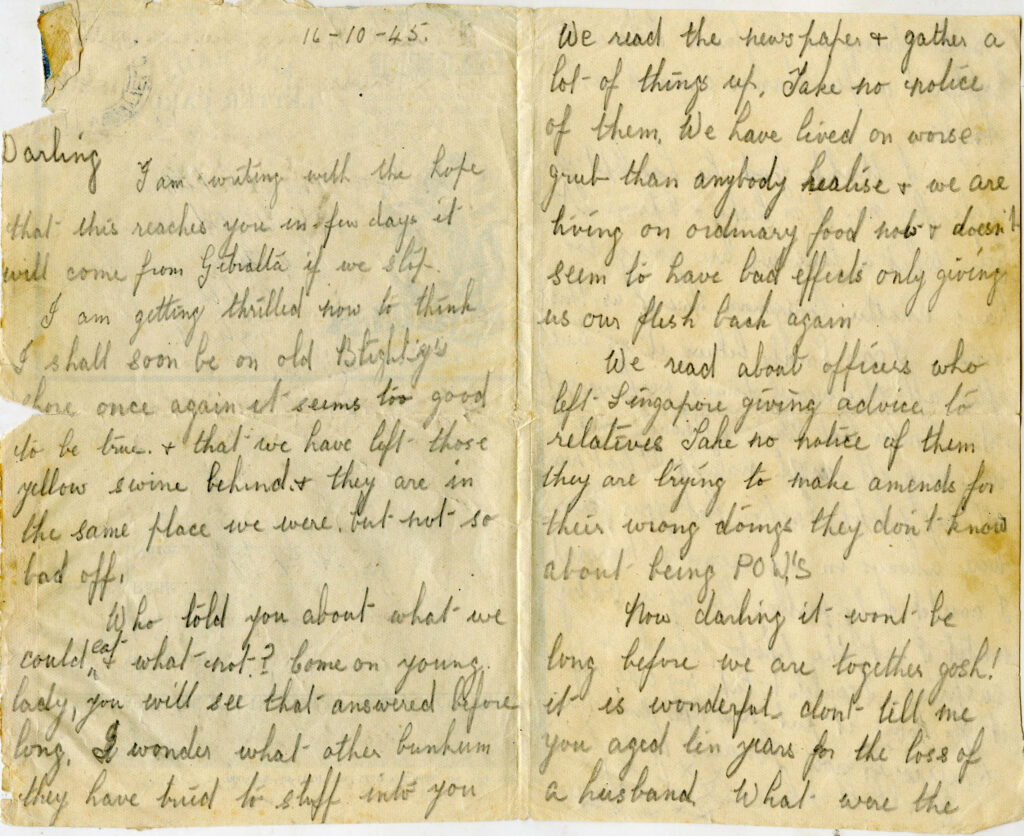 16-10-45.
Darling
I am writing with the hope
that this reaches you in few days it
will come from Gibralta if we stop.
I am getting thrilled now to think
I shall soon be on old Blighty's
shore once again it seems too good
to be true. & that we have left those
yellow swine behind. & they are in
the same place we were. but not so
bad off.
Who told you about what we
could eat & what not? Come on young
lady, you will see that answered before
long. I wonder what other bunkum
they have tried to stuff into you
We read the newspaper & gather a
lot of things up. Take no notice
of them. We have lived on worse
grub than anybody realise & we are
living on ordinary food now & doesn't
seem to have bad effects only giving
us our flesh back again
We read about officers who
left Singapore giving advice to
relatives Take no notice of them
they are trying to make amends for
their wrong doings they don't know
about being POW's
Now darling it wont be
long before we are together gosh!
it is wonderful don't tell me
you aged ten years for the loss of
a husband. What were the